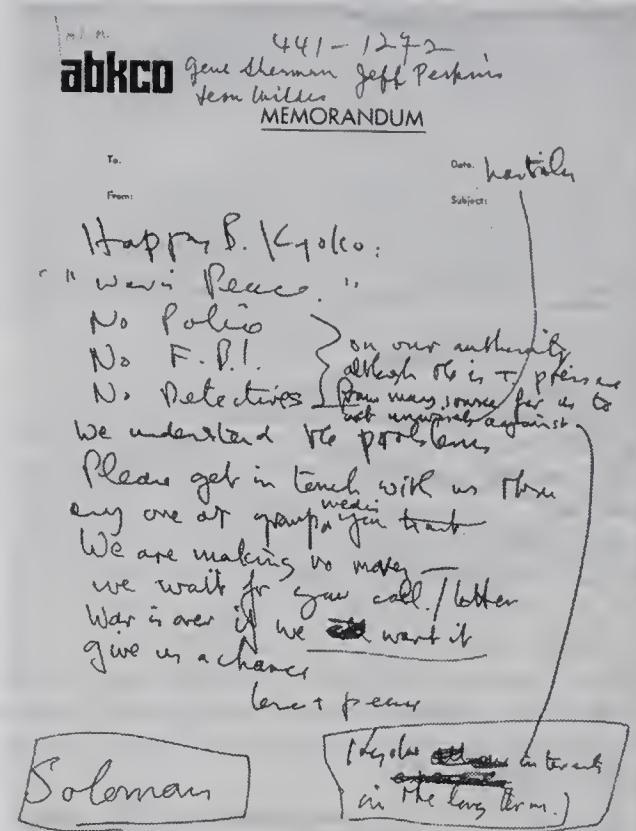 441-1272
abkco
Gene Sherman Jeff Perkins
Leon Wildes
MEMORANDUM
To.
Date.
From:
Subject:
Happy B. Kyoko:
" Peace. "
No Police
No F.B.I.
No Detectives
on our authority
although is + pressure
from many sources for us to
act against
We understand the problems
Please get in touch with us thru
any one or group you trust
media
We are making no moves —
we wait for your call / letter
War is over if we want it
give us a chance
love + peace
Soloman
interests
in the long term.)